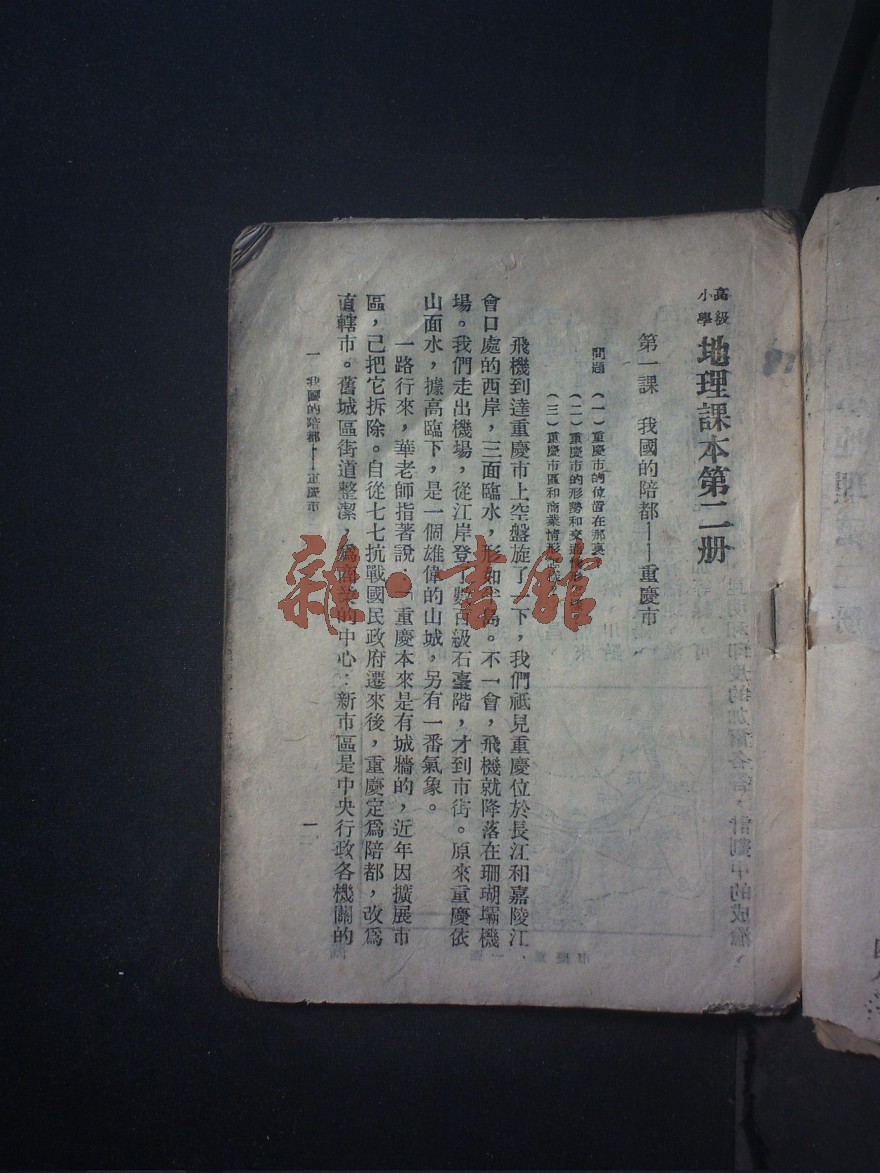 高級
小學
地理課本第二册
第一課　我國的陪都——重慶市
問題　(一)重慶市的位置在那裏
(二)重慶市的形勢和交通
(三)重慶市區和商業情形
飛機到達重慶市上空盤旋了一下，我們祇見重慶位於長江和嘉陵江
會口處的西岸，三面臨水，形如半島。不一會，飛機就降落在珊瑚壩機
場。我們走出機場，從江岸登了數百級石臺階，才到市街。原來重慶依
山面水，據高臨下，是一個雄偉的山城，另有一番氣象。
一路行來，華老師指著說，「重慶本來是有城牆的，近年因擴展市
區，已把它拆除。自從七七抗戰國民政府遷來後，重慶定爲陪都，改爲
直轄市。舊城區街道整潔，爲商業的中心；新市區是中央行政各機關的
一　我國的陪都——重慶市
一
雜·書館